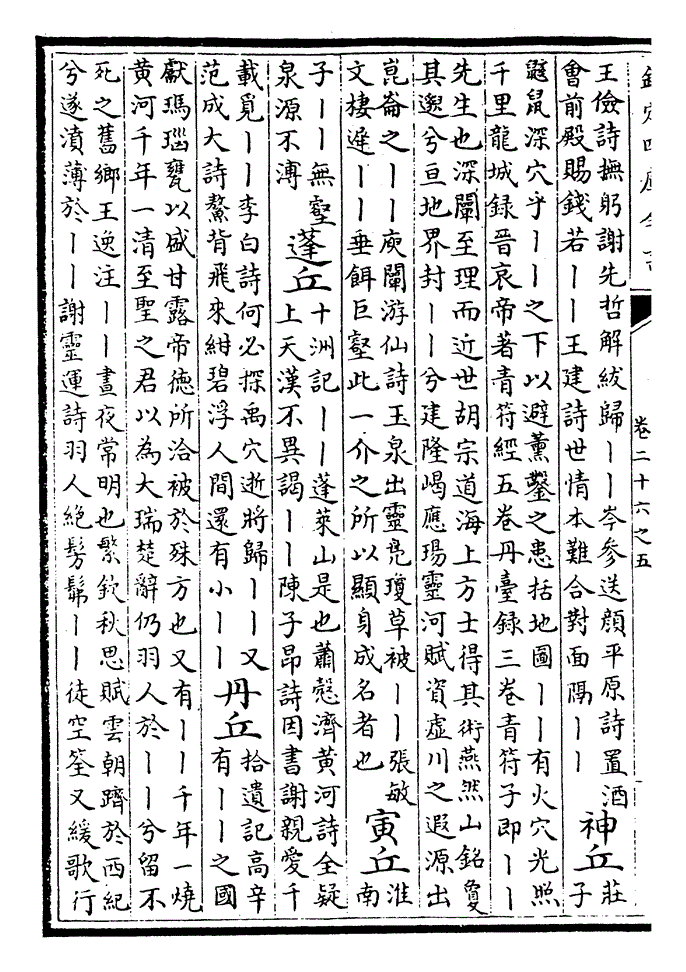 欽定四庫全書
卷二十六之五
王儉詩撫躬謝先哲解紱歸丨丨岑參送顔平原詩置酒
會前殿賜錢若丨丨王建詩世情本難合對面隅丨丨
神丘
莊
子
鼷鼠深穴乎丨丨之下以避薰鑿之患括地圖丨丨有火穴光照
千里龍城録晉哀帝著青符經五卷丹臺録三卷青符子即丨丨
先生也深闡至理而近世胡宗道海上方士得其術燕然山銘敻
其邈兮亘地界封丨丨兮建隆嵑應瑒靈河賦資虛川之遐源出
崑崙之丨丨庾闡游仙詩玉泉出靈凫瓊草被丨丨張敏
文棲遲丨丨垂餌巨壑此一介之所以顯身成名者也
寅丘
淮
南
子丨丨無壑
泉源不溥
蓬丘
十洲記丨丨蓬萊山是也蕭慤濟黄河詩全疑
上天漢不異謁丨丨陳子昂詩因書謝親愛千
載覓丨丨李白詩何必探禹穴逝將歸丨丨又
范成大詩鰲背飛來紺碧浮人間還有小丨丨
丹丘
拾遺記高辛
有丨丨之國
獻瑪瑙甕以盛甘露帝德所洽被於殊方也又有丨丨千年一燒
黄河千年一清至聖之君以為大瑞楚辭仍羽人於丨丨兮留不
死之舊鄉王逸注丨丨晝夜常明也繁欽秋思賦雲朝躋於西紀
兮遂濆薄於丨丨謝靈運詩羽人絶髣髴丨丨徒空筌又緩歌行